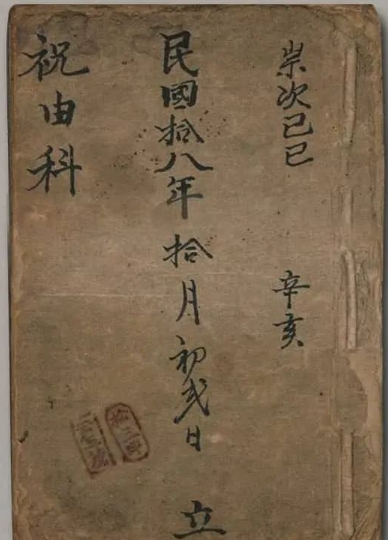 崇次己巳 辛亥
民國拾八年拾月初弍日 立
祝由科